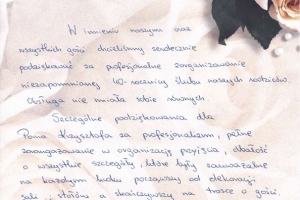 W imieniu naszym oraz
wszystkich gości chcieliśmy serdecznie
podziękować za profesjonalne zorganizowanie
niezapomnianej 40-rocznicy ślubu naszych rodziców.
Obsługa nie miała sobie równych
Szczególne podziękowania dla
Pana Krzysztofa za profesjonalizm, pełne
zaangażowanie w organizację przyjęcia, dbałość
o wszystkie szczegóły, które były zauważalne
na każdym kroku począwszy od dekoracji
sali i stołów a skończywszy na trosce o gości